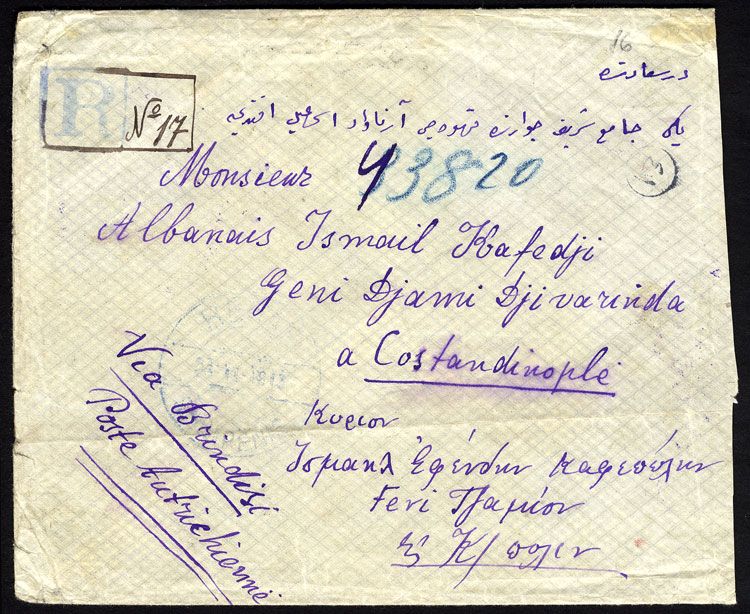 16
در سعادت
R
Nº 17
يڭى جامع شريف جوارنده قهوه جى آرناود اسماعيل افندى
Monsieur
33820
Albanais Ismail Kafedji
Geni Djami Djivarinda
a Costandinople
Via Brindisi
Poste Autrichienne
Κυριον
Ισμαηλ Εφένδην καφεπώλην
Γενι Τζαμίον
Κ/πολιν